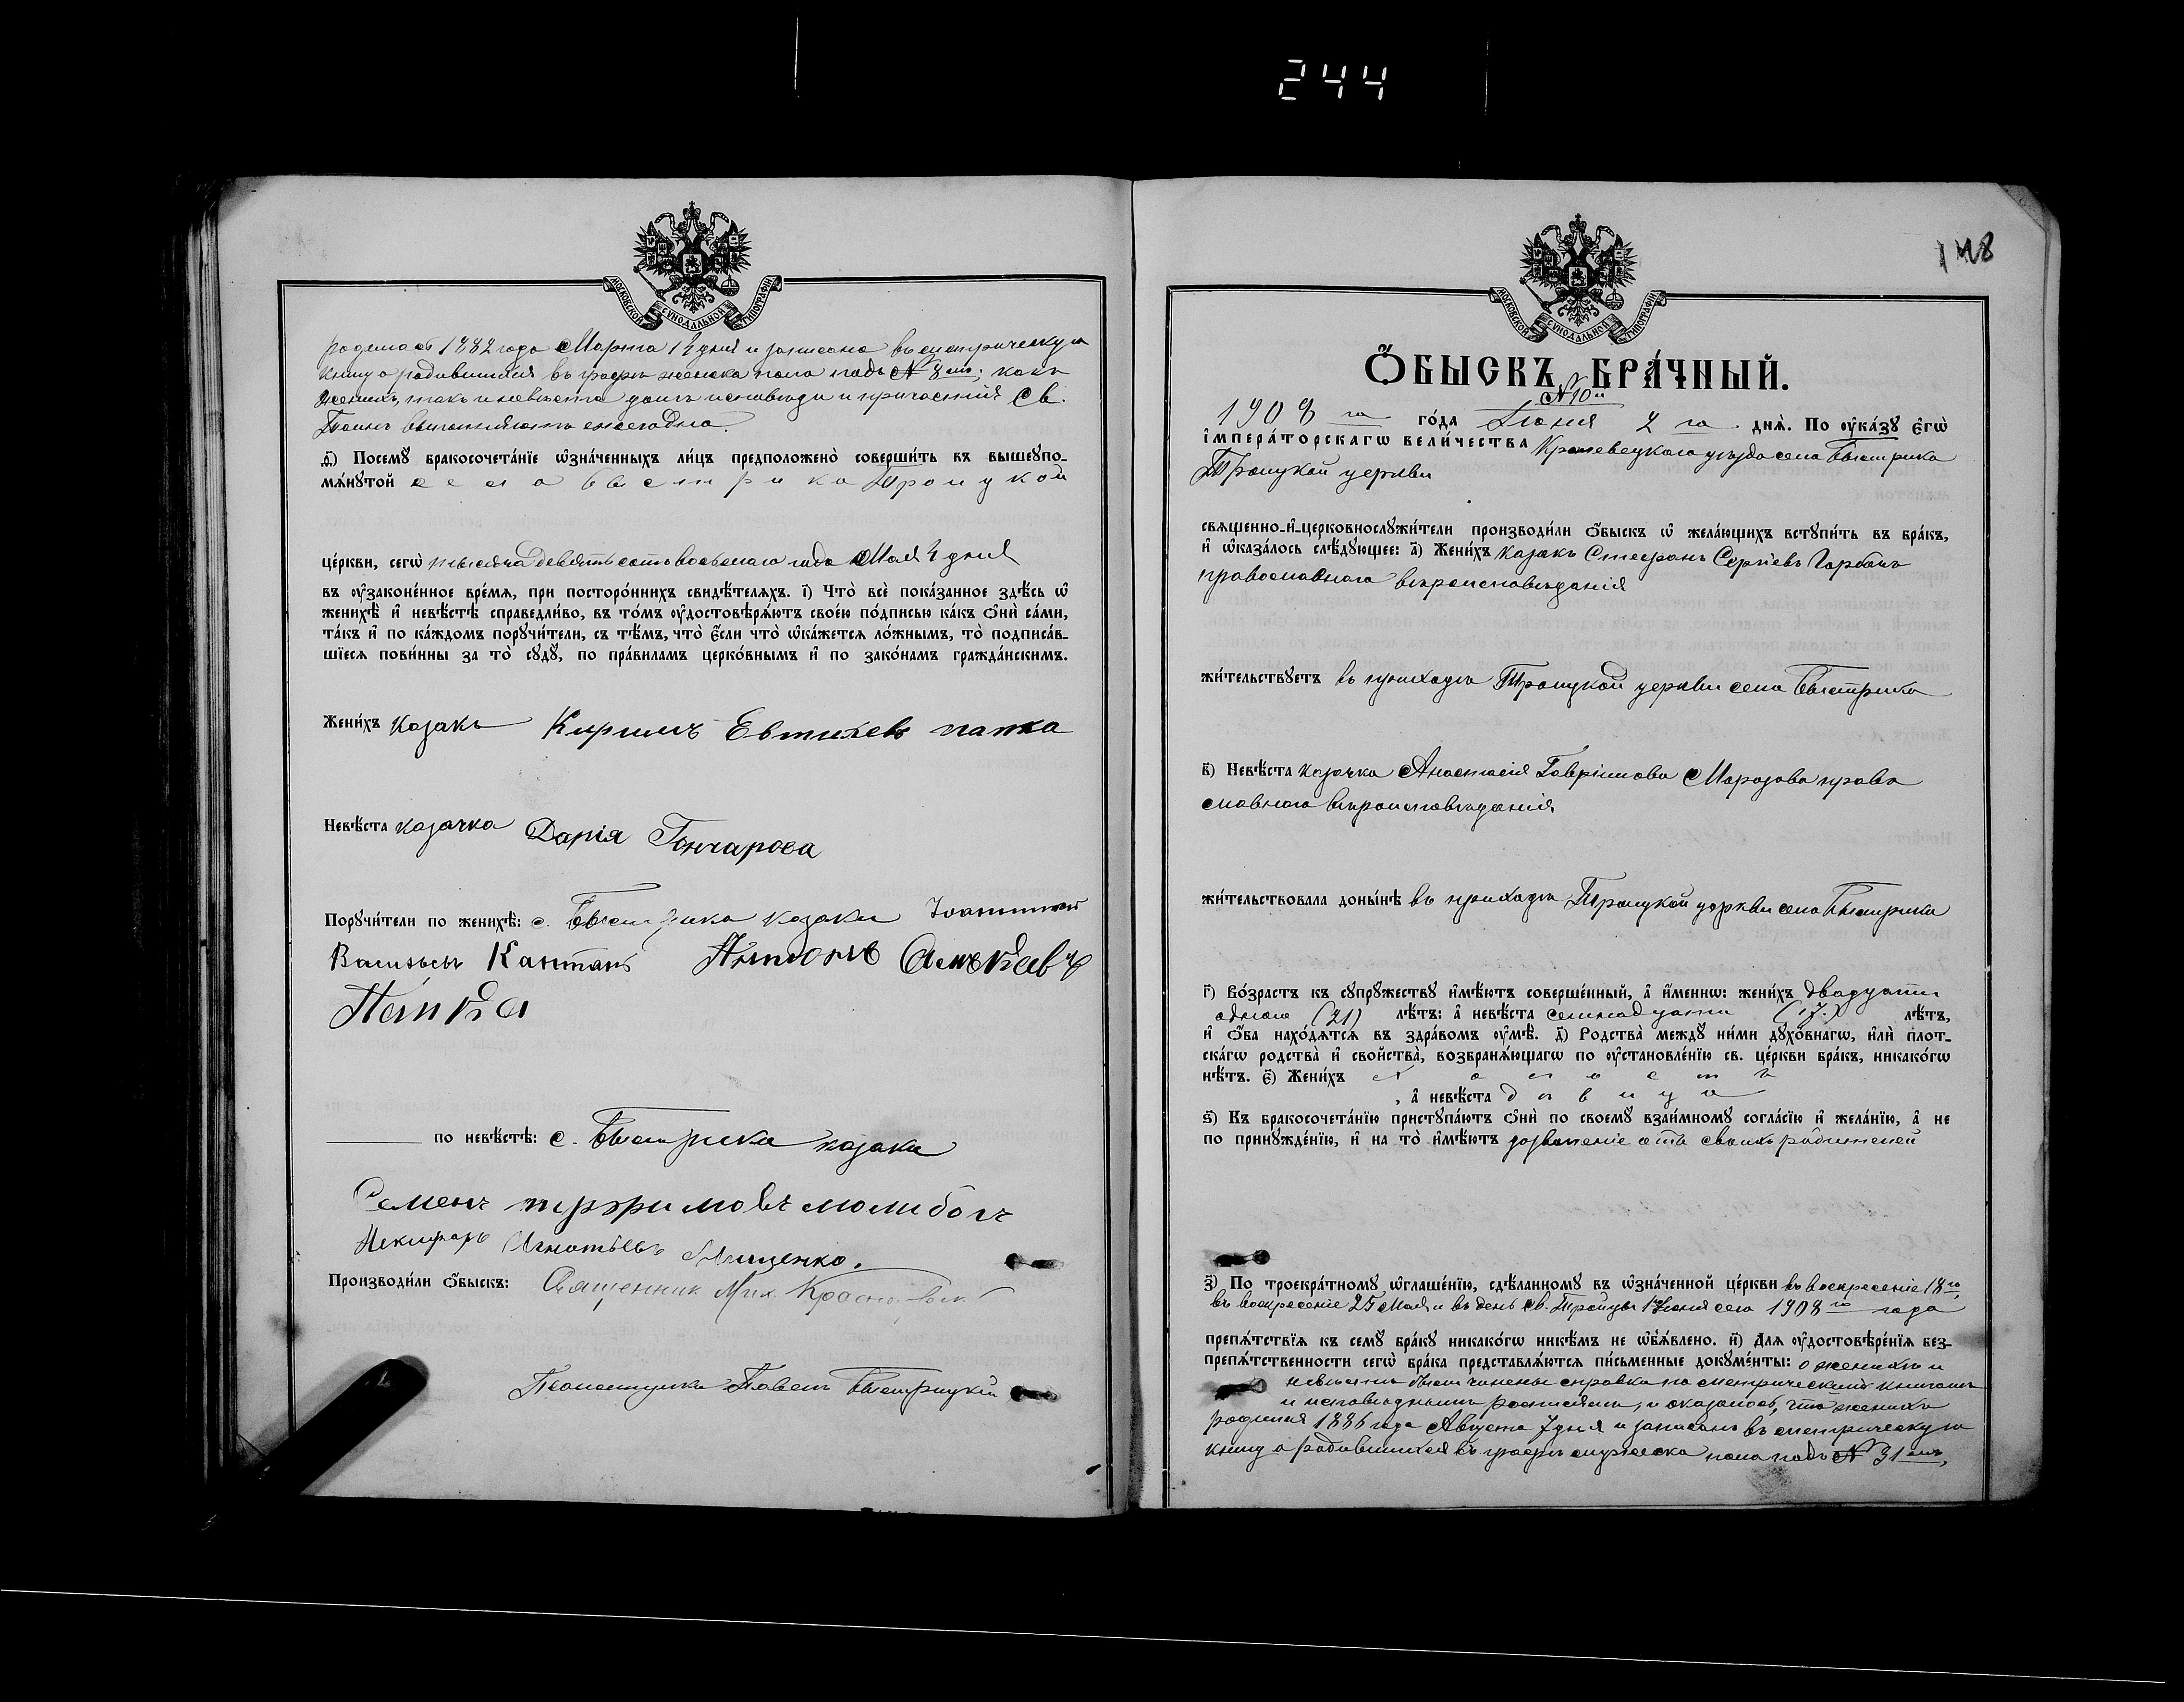 244
МОСКОВСКОЙ СѴНОДАЛЬНОЙ ТИПОГРАФІИ
родилась 1882 года Марта 1 дня и записана въ метрическую
книгу о родившихся въ графѣ женска пола подъ № 8мъ; какъ
женихъ, такъ и невѣста долгъ исповѣди и причастія Св.
Таинъ выполняютъ ежегодно.
ѳ҃) Посемꙋ бракосочета́нїе ѡзна́ченныхъ ли́цъ предположено̀ соверши́ть въ вышеꙋпо-
мѧ́нꙋтой села Быстрика Троицкой
це́ркви, сегѡ̀ тысяча девятьсотъ восьмаго года Мая дня
въ ᲂу҆зако́ненное вре́мѧ, при посторо́ннихъ свидѣ́телѧхъ. і҃) Что̀ всѐ пока́занное здѣ́сь ѡ҆
женихѣ̀ и҆ невѣ́стѣ справедли́во, въ то́мъ ᲂу҆достовѣрѧ́ютъ свое́ю по́дписью ка́къ ѻ҆нѝ са́ми,
та́къ и҆ по ка́ждомъ порꙋчи́тели, съ тѣ́мъ, что̀ є҆́сли что̀ ѡ҆ка́жетсѧ ло́жнымъ, то̀ подписа́в-
шїесѧ пови́нны за то̀ сꙋдꙋ̀, по пра́виламъ церко́внымъ и҆ по зако́намъ гражда́нскимъ.
Жени́хъ казакъ Кирилъ Евтихевъ папка
Невѣ́ста казачка Дарія Гончарова
Порꙋчи́тели по женихѣ̀: с. Быстрика казаки
Васильевъ Каптанъ Антонъ Алекѣевъ
Папка
по невѣ́стѣ: с. Быстрика казаки
Семенъ молибогъ
Никифоръ Игнатьевъ Лященко.
Производи́ли ѻ҆́быскъ: Священник Мих.
Псаломщикъ Павелъ Быстрицкій
148
МОСКОВСКОЙ СѴНОДАЛЬНОЙ ТИПОГРАФІИ
Ѻ҆́БЫСКЪ БРА́ЧНЫЙ.
№ 10й
1908 го го́да Іюня 2 го днѧ̀. По ᲂу҆ка́зꙋ є҆гѡ̀
і҆мпера́торскагѡ вели́чества Кролевецкаго уѣзда села Быстрика
Троицкой церкви
свѧщенно-и҆-церковнослꙋжи́тели производи́ли ѻ҆́быскъ ѡ҆ жела́ющихъ встꙋпи́ть въ бра́къ,
и҆ ѡ҆каза́лось слѣ́дꙋющее: а҃) Жени́хъ казакъ Стефанъ Сергіевъ Горбачъ
православнаго вѣроисповѣданія
жи́тельствꙋетъ въ приходѣ Троицкой церкви села Быстрика
в҃) Невѣ́ста казачка Анастасія Гавріилова Морозова право
славнаго вѣроисповѣданія
жи́тельствовала доны́нѣ въ приходѣ Троицкой церкви села Быстрика
г҃) Во́зрастъ къ сꙋпрꙋ́жествꙋ и҆мѣ́ютъ соверше́нный, а҆ и҆́меннѡ: жени́хъ двадцати
одного (21) лѣ́тъ: а҆ невѣ́ста семнадцати (17.) лѣ́тъ,
и҆ ѻ҆́ба нахо́дѧтсѧ въ здра́вомъ ᲂу҆мѣ̀. д҃) Родства̀ междꙋ̀ ни́ми дꙋхо́внагѡ, и҆лѝ пло́т-
скагѡ родства̀ и҆ сво́йства̀, возбранѧ́ющагѡ по ᲂу҆становле́нїю св. це́ркви бра́къ, никако́гѡ
нѣ́тъ. є҃) Жени́хъ холостъ
, а҆ невѣ́ста дѣвица
ѕ҃) Къ бракосочета́нїю пристꙋпа́ютъ ѻ҆нѝ по своемꙋ̀ взаи́мномꙋ согла́сїю и҆ жела́нїю, а҆ не
по принꙋжде́нїю, и҆ на то̀ и҆мѣ́ютъ дозволеніе отъ своихъ родителей
з҃) По троекра́тномꙋ ѡ҆глаше́нїю, сдѣ́ланномꙋ въ ѡ҆зна́ченной це́ркви въ воскресеніе 18 го,
въ воскресеніе 25 Мая и въ день св. Тройцы 1го Іюня сего 1908 го года
препѧ́тствїѧ къ семꙋ̀ бра́кꙋ никако́гѡ никѣ́мъ не ѡ҆б̾ѧ́влено. и҃) Длѧ ᲂу҆достовѣре́нїѧ без-
препѧ́тственности сегѡ̀ бра́ка представлѧ́ютсѧ пи́сьменные докꙋме́нты: о женихѣ и
невѣстѣ были чинены справки по метрическимъ книгамъ
и исповѣднымъ росписямъ, и оказалось, что женихъ
родился 1886 года Августа 7 дня и записанъ въ метрическую
книгу о родившихся въ графѣ мужеска пола подъ № 31мъ,